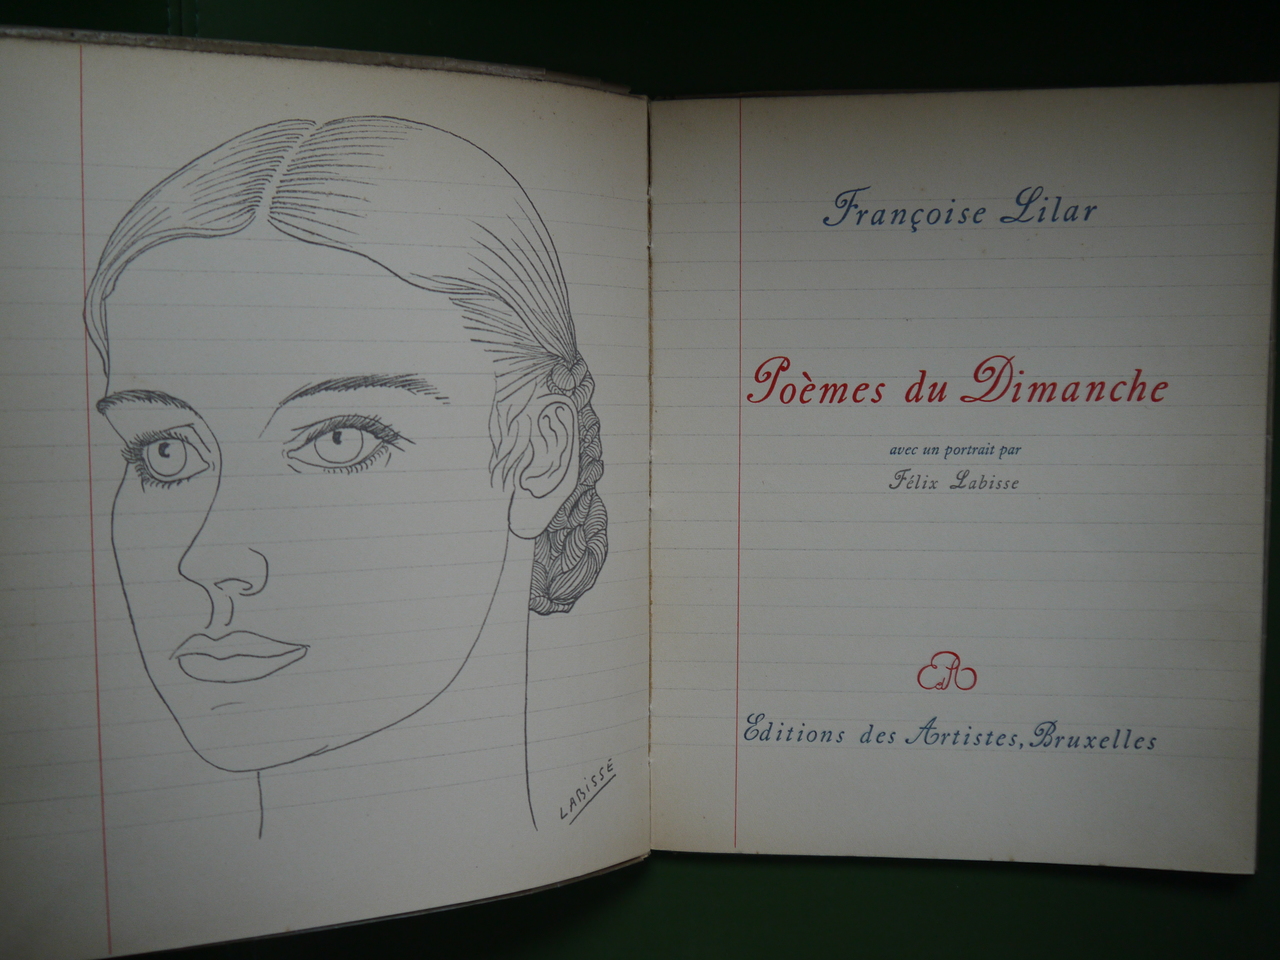 LABiSSE
Françoise Lilar
Poèmes du Dimanche
avec un portrait par
Félix Labisse
EdA
Editions des Artistes, Bruxelles